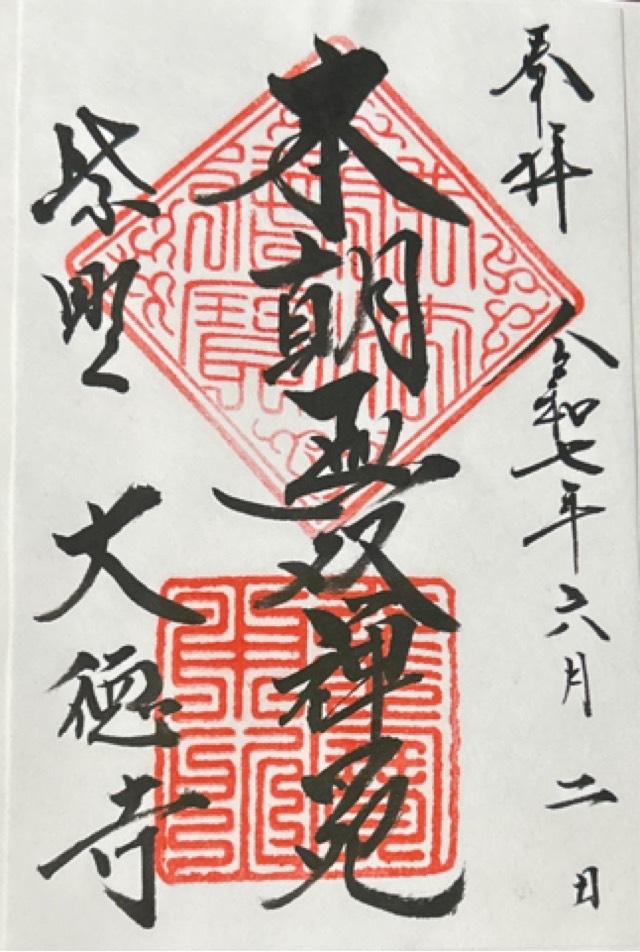 奉拝 令和七年六月二日
本朝無双禅苑
紫野 大徳寺